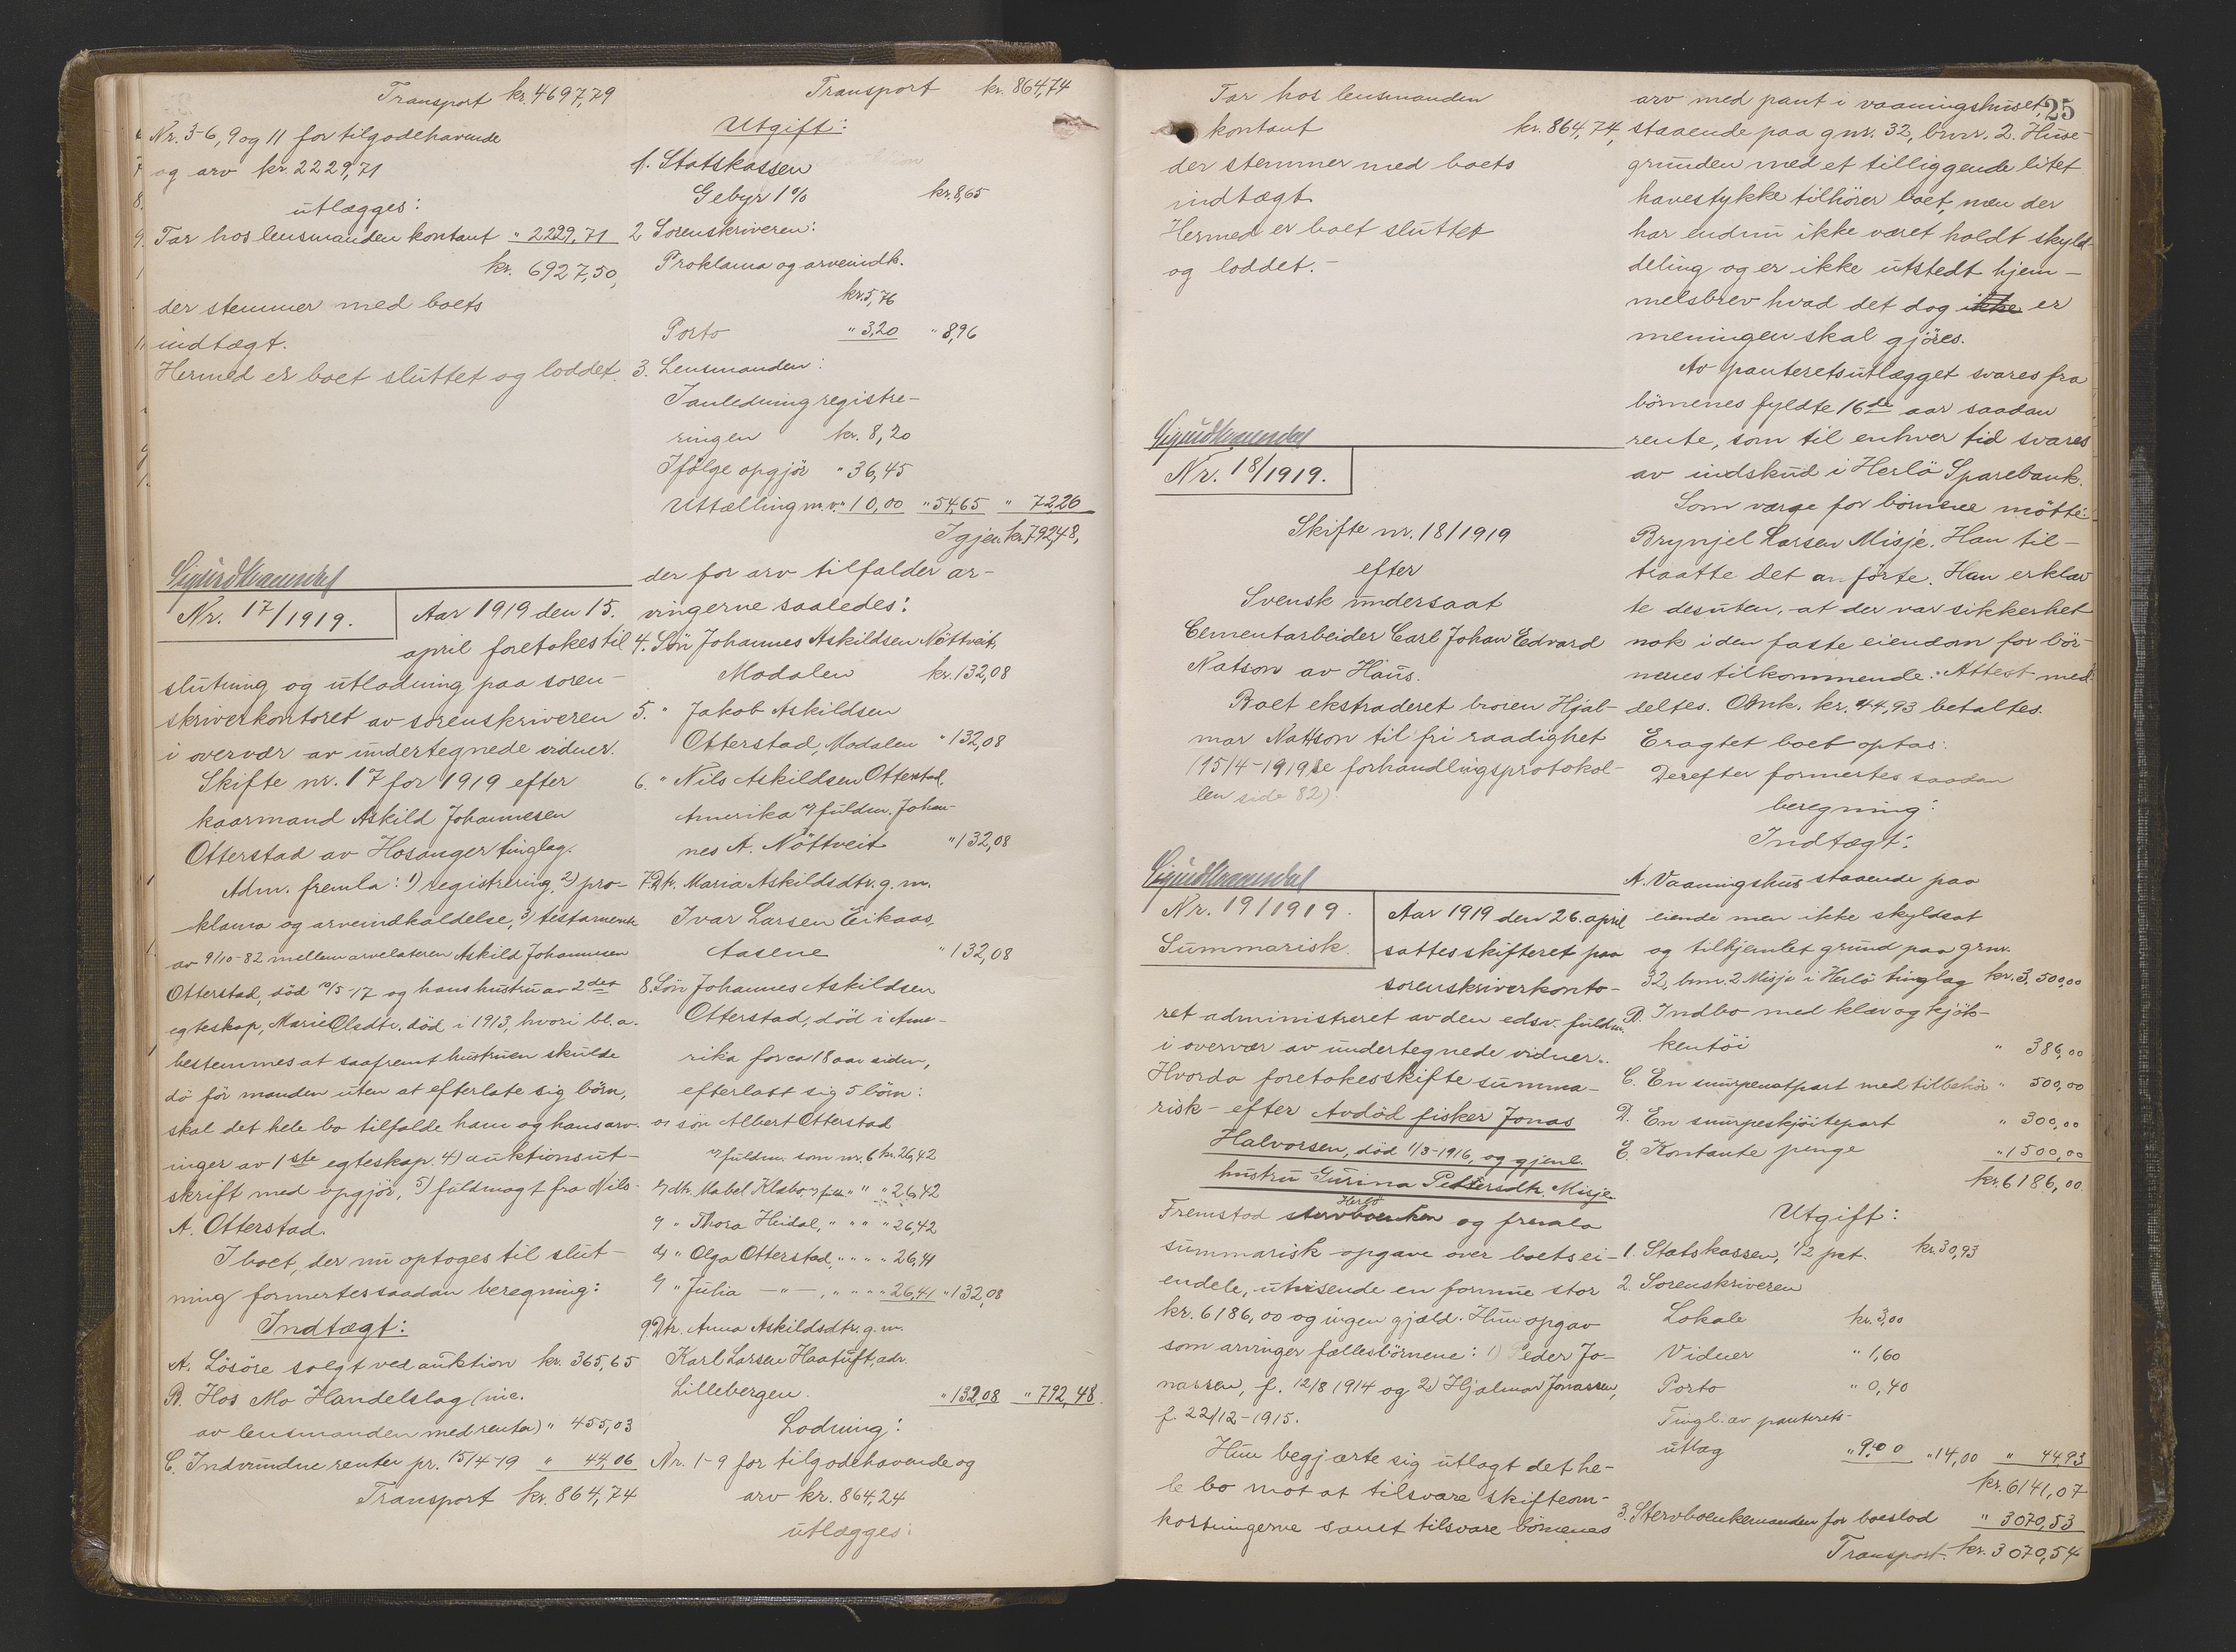 Transport kr. 4697,79
Nr. 3-6, 9 og 11 for tilgodehavende
og arv kr. 2229,71
utlægges:
Tar hos lensmanden kontant " 2229,71
kr. 6927,50,
der stemmer med boets
indtægt.
Hermed er boet sluttet og loddet.
Nr. 17/1919.
Aar 1919 den 15.
april foretokes til
slutning og utlodning paa soren-
skriverkontoret av sorenskriveren
i overvær av undertegnede vidner.
Skifte nr. 17 for 1919 efter
kaarmand Askild Johannesen
Otterstad av Hosanger tinglag.
Adm. fremla: 1) registrering, 2) pro-
klama og arveindkaldelse, 3) testamente
av 9/10-82 mellem arvelateren Askild Johannesen
Otterstad, död 10/5-17 og hans hustru av 2det
egteskap, Marie Olsdtr. död i 1913, hvori bl.a.
bestemmes at saafremt hustruen skulde
dö för manden uten at efterlate sig börn,
skal det hele bo tilfalde ham og hans arv-
inger av 1ste egteskap. 4) auktionsut-
skrift med opgjör, 5) fuldmagt fra Nils
A. Otterstad.
I boet, der nu optoges til slut-
ning formertes saadan beregning:
Indtægt:
A. Lösöre solgt ved auktion kr. 365,65
B. Hos Mo Handelslag (inc.
av lensmanden med renter) " 455,03
C. Indvundne renter pr. 15/4-19 " 44,06
Transport kr. 864,74
Transport kr. 864,74
Utgift:
1. Statskassen
Gebyr 1% kr. 8,65
2 Sorenskriveren:
Proklama og arveindk.
kr. 5,76
Porto " 3,20 " 8,96
3. Lensmanden:
I anledning registre-
ringen kr. 8,20
Ifölge opgjör " 36,45
Uttælling m.v. " 10,00 " 54,65 " 72,26
Igjen kr. 792,48,
der for arv tilfalder ar-
vingerne saaledes:
4. Sön Johannes Askildsen Nöttveit,
Modalen kr. 132,08
5. " Jakob Askildsen
Otterstad, Modalen " 132,08
6. " Nils Askildsen Otterstad,
Amerika v/ fuldm. Johan-
nes A. Nöttveit " 132,08
7 Dtr. Maria Askildsdtr. g.m.
Ivar Larsen Eikaas,
Aasene " 132,08
8. Sön Johannes Askildsen
Otterstad, död i Ame-
rika for ca 18 aar siden,
efterlatt sig 5 börn:
a) sön Albert Otterstad
v/ fuldm. som nr. 6 kr. 26,42
b) dtr. Mabel Klæbo, v/ful. " " " 26,42
c) " Thora Heidal, " " " " 26,42
d) " Olga Otterstad, " " " " 26,41
e) " Julia — " —, " " " " 26,41 " 132,08
9 Dtr. Anna Askildsdtr. g.m.
Karl Larsen Haatuft, adr.
Lillebergen. " 132,08 " 792,48
Lodning:
Nr. 1-9 for tilgodehavende og
arv kr. 864,24
utlægges:
Tar hos lensmanden
kontant kr. 864,74,
der stemmer med boets
indtægt
Hermed er boet sluttet
og loddet.-
Nr. 18/1919.
Skifte nr. 18/1919
efter
Svensk undersaat
Cementarbeider Carl Johan Edvard
Natson av Haus.
Boet ekstraderet broren Hjal-
mar Nattson til fri raadighet
(15/4-1919 se forhandlingsprotokol-
len side 82).
Nr. 19/1919.
Summarisk.
Aar 1919 den 26. april
sattes skifteret paa
sorenskriverkonto-
ret administreret av den edsv. fuldm.
i overvær av undertegnede vidner.
Hvorda foretokes skifte summa-
risk - efter Avdöd fisker Jonas
Halvorsen, död 1/3-1916, og gjenl.
hustru Gurina Pettersdtr. Misje
Herlö
Fremstod stervboenken og fremla
summarisk opgave over boets ei-
endele, utvisende en formue stor
kr. 6186,00 og ingen gjæld. Hun opgav
som arvinger fællesbörnene: 1) Peder Jo-
nassen, f. 12/8 1914 og 2) Hjalmar Jonassen,
f. 22/12-1915.
Hun begjærte sig utlagt det he-
le bo mot at tilsvare skifteom-
kostningerne samt tilsvare börnenes
25
arv med pant i vaaningshuset,
staaende paa gnr. 32, bnr. 2. Huse-
grunden med et tilliggende litet
havestykke tilhörer boet, men der
har endnu ikke været holdt skyld-
deling og er ikke utstedt hjem-
melsbrev hvad det dog ikke er
meningen skal gjöres.
Av panteretsutlægget svares fra
börnenes fyldte 16de aar saadan
rente, som til enhver tid svares
av indskud i Herlö Sparebank.
Som værge for börnene mötte:
Brynjel Larsen Misje. Han til-
traatte det anförte. Han erklær
te desuten, at der var sikkerhet
nok i den faste eiendom for bör-
nenes tilkommende. Attest med
deltes. Omk. kr. 44,93 betaltes.
Eragtet boet optas:
Derefter formertes saadan
beregning:
Indtægt:
A. Vaaningshus staaende paa
eiende men ikke skyldsat
og tilhjemlet grund paa gnr.
32, bnr. 2 Misje i Herlö tinglag kr. 3,500,00
B. Indbo med klær og kjök-
kentöi " 386,00
C. En snurpenotpart med tilbehör " 500,00
D. En snurpeskjöitepart " 300,00
E. Kontante penge " 1500,00
kr. 6186,00
Utgift:
1. Statskassen, 1/2 pct. kr. 30,93
2. Sorenskriveren
Lokale kr. 3,00
Vidner " 1,60
Porto " 0,40
Tingl. av panterets-
utlæg " 9,00 " 14,00 " 44,93
kr. 6141,07
3. Stervboenkemanden for boeslod " 3070,53
Transport. kr. 3070,54